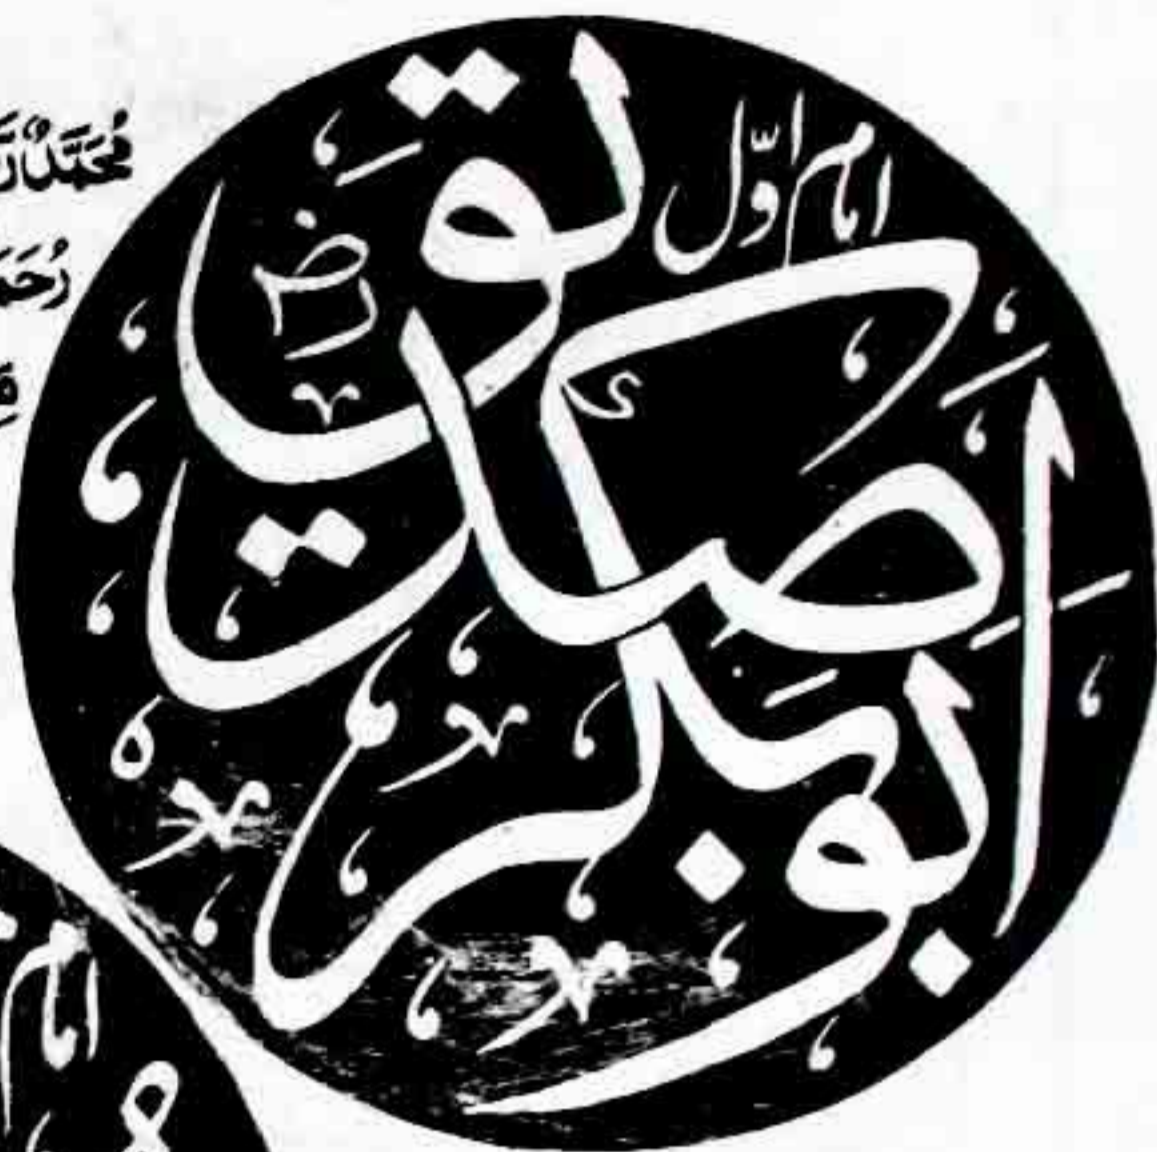 امام اوّل
ابوبکر صدیق
رض
مُحَمَّدٌ
امام